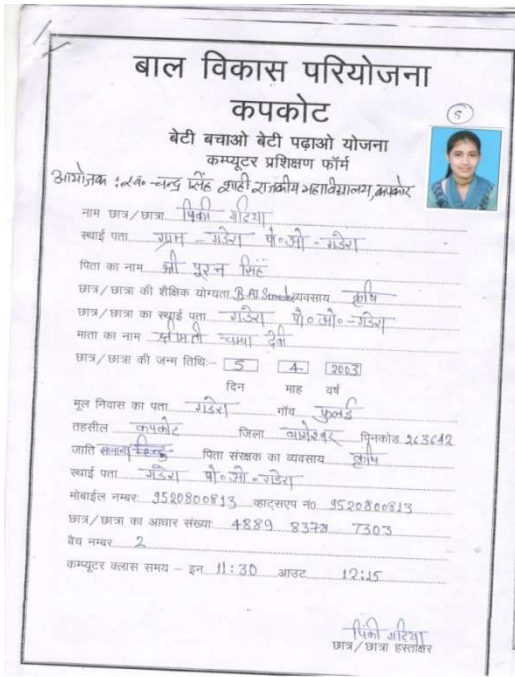 5
बाल विकास परियोजना
कपकोट
बेटी बचाओ बेटी पढ़ाओ योजना
कम्प्यूटर प्रशिक्षण फॉर्म
आयोजक : स्व० चन्द्र सिंह शाही राजकीय महाविद्यालय, कपकोट
नाम छात्र/छात्रा पिंकी गड़िया
स्थाई पता ग्राम - गडेरा पो०ओ - गडेरा
पिता का नाम श्री पूरन सिंह
छात्र/छात्रा की शैक्षिक योग्यता B.A व्यवसाय कृषि
छात्र/छात्रा का स्थाई पता गडेरा पो०ओ० - गडेरा
माता का नाम श्रीमती चम्पा देवी
छात्र/छात्रा की जन्म तिथि:- 5 4 2003
दिन माह वर्ष
मूल निवास का पता गडेरा गाँव
तहसील कपकोट जिला बागेश्वर पिनकोड 263642
जाति सामान्य पिता संरक्षक का व्यवसाय कृषि
स्थाई पता गडेरा पो०ओ० गडेरा
मोबाईल नम्बर: 9520800813 व्हाट्सएप नं० 9520800813
छात्र/छात्रा का आधार संख्या: 4889 8378 7303
बैच नम्बर 2
कम्प्यूटर क्लास समय - इन 11:30 आउट 12:15
पिंकी गड़िया
छात्र/छात्रा हस्ताक्षर